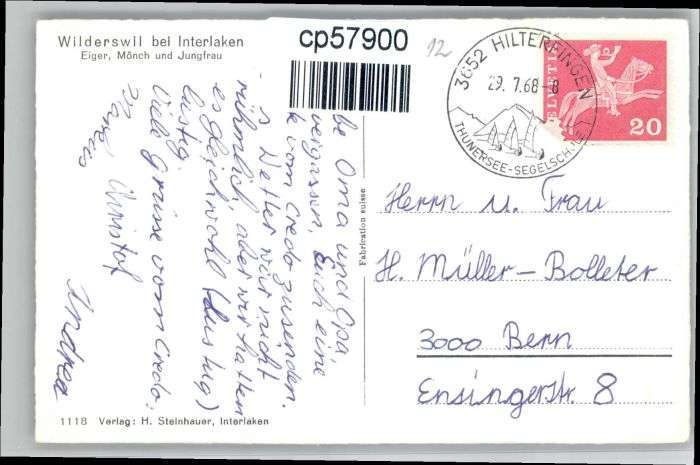 Wilderswil bei Interlaken
Eiger, Mönch und Jungfrau
cp57900
12
3652 HILTERFINGEN
29. 7.68-8
THUNERSEE-SEGELSCHULE
HELVETIA
20
be Oma und Opa,
vergassen, Euch eine
k vom Credo zusenden.
s Wetter war nicht
rühmlich, aber wir hatten
es gleichwohl (lustig)
lustig.
Viele Grüsse vom Credo:
Christof
Andrea
Fabrication suisse
Herrn u. Frau
H. Müller-Bolleter
3000 Bern
Ensingerstr. 8
1118 Verlag: H. Steinhauer, Interlaken